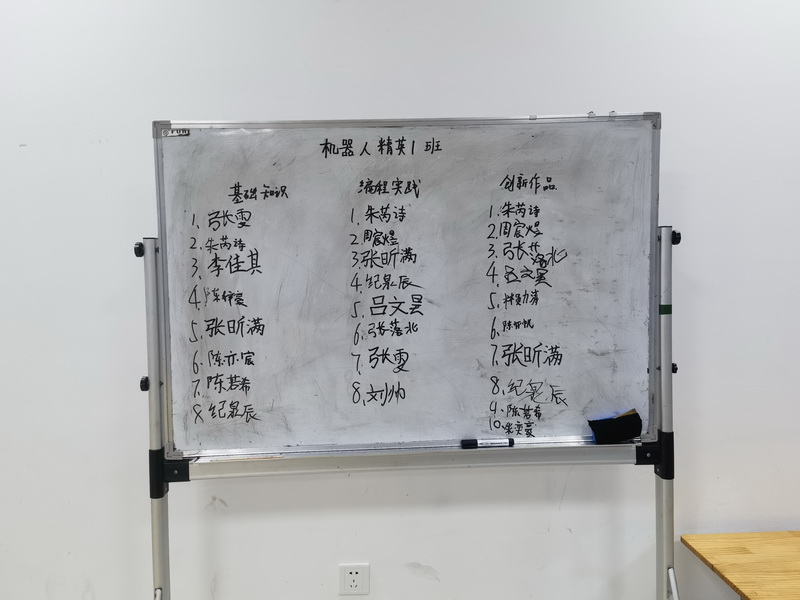 机器人精英1班
基础知识
1、张雯
2、朱芮诗
3、李佳其
4、
5、张昕满
6、陈亦宸
7、陈若希
8、纪泉辰
编程实践
1、朱芮诗
2、周宸煜
3、张昕满
4、纪泉辰
5、吕文昊
6、张落北
7、张雯
8、刘帅
创新作品
1、朱芮诗
2、周宸煜
3、张落北
4、吕文昊
5、
6、
7、张昕满
8、纪泉辰
9、陈若希
10、